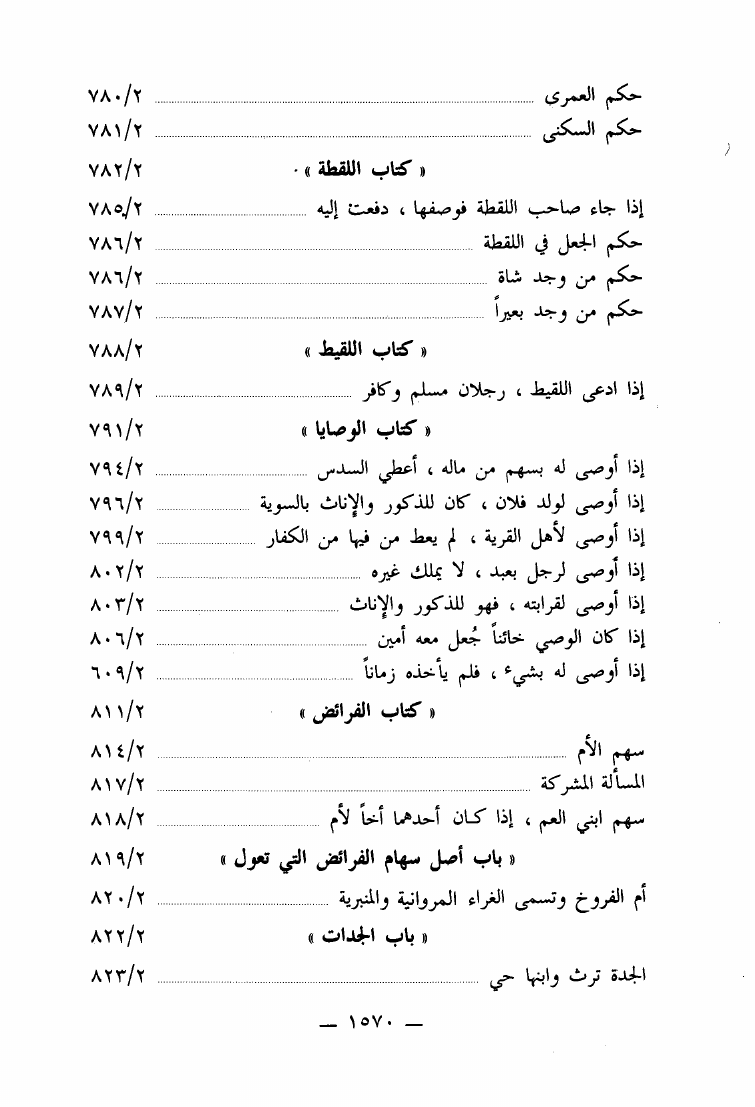 حكم العمرى ........ ٧٨٠/٢
حكم السكنى ........ ٧٨١/٢
« كتاب اللقطة » ٧٨٢/٢
إذا جاء صاحب اللقطة فوصفها ، دفعت إليه ........ ٧٨٥/٢
حكم الجعل في اللقطة ........ ٧٨٦/٢
حكم من وجد شاة ........ ٧٨٦/٢
حكم من وجد بعيراً ........ ٧٨٧/٢
« كتاب اللقيط » ٧٨٨/٢
إذا ادعى اللقيط ، رجلان مسلم وكافر ........ ٧٨٩/٢
« كتاب الوصايا » ٧٩١/٢
إذا أوصى له بسهم من ماله ، أعطي السدس ........ ٧٩٤/٢
إذا أوصى لولد فلان ، كان للذكور والإناث بالسوية ........ ٧٩٦/٢
إذا أوصى لأهل القرية ، لم يعط من فيها من الكفار ........ ٧٩٩/٢
إذا أوصى لرجل بعبد ، لا يملك غيره ........ ٨٠٢/٢
إذا أوصى لقرابته ، فهو للذكور والإناث ........ ٨٠٣/٢
إذا كان الوصي خائناً جُعل معه أمين ........ ٨٠٦/٢
إذا أوصى له بشيء ، فلم يأخذه زماناً ........ ٦٠٩/٢
« كتاب الفرائض » ٨١١/٢
سهم الأم ........ ٨١٤/٢
المسألة المشركة ........ ٨١٧/٢
سهم ابني العم ، إذا كان أحدهما أخاً لأم ........ ٨١٨/٢
« باب أصل سهام الفرائض التي تعول » ٨١٩/٢
أم الفروخ وتسمى الغراء المروانية والمنبرية ........ ٨٢٠/٢
« باب الجدات » ٨٢٢/٢
الجدة ترث وابنها حي ........ ٨٢٣/٢
— ١٥٧٠ —